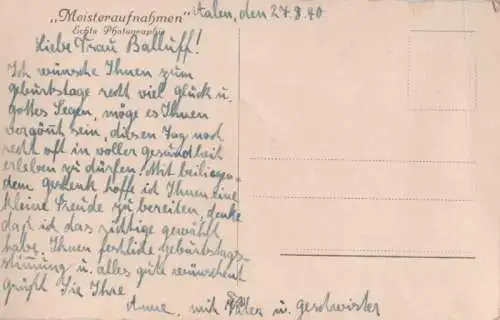 „Meisteraufnahmen"
Echte Photographie
Aalen, den 27.8.40
Liebe Frau Balluff!
Ich wünsche Ihnen zum
Geburtstage recht viel Glück u.
Gottes Segen, möge es Ihnen
vergönnt sein, diesen Tag noch
recht oft in voller Gesundheit
erleben zu dürfen! Mit beiliegen-
dem Geschenk hoffe ich Ihnen eine
kleine Freude zu bereiten, denke
daß ich das richtige gewählt
habe. Ihnen festliche Geburtstags-
stimmung u. alles gute wünschend
grüßt Sie Ihre
Anne, mit Vater u. Geschwister